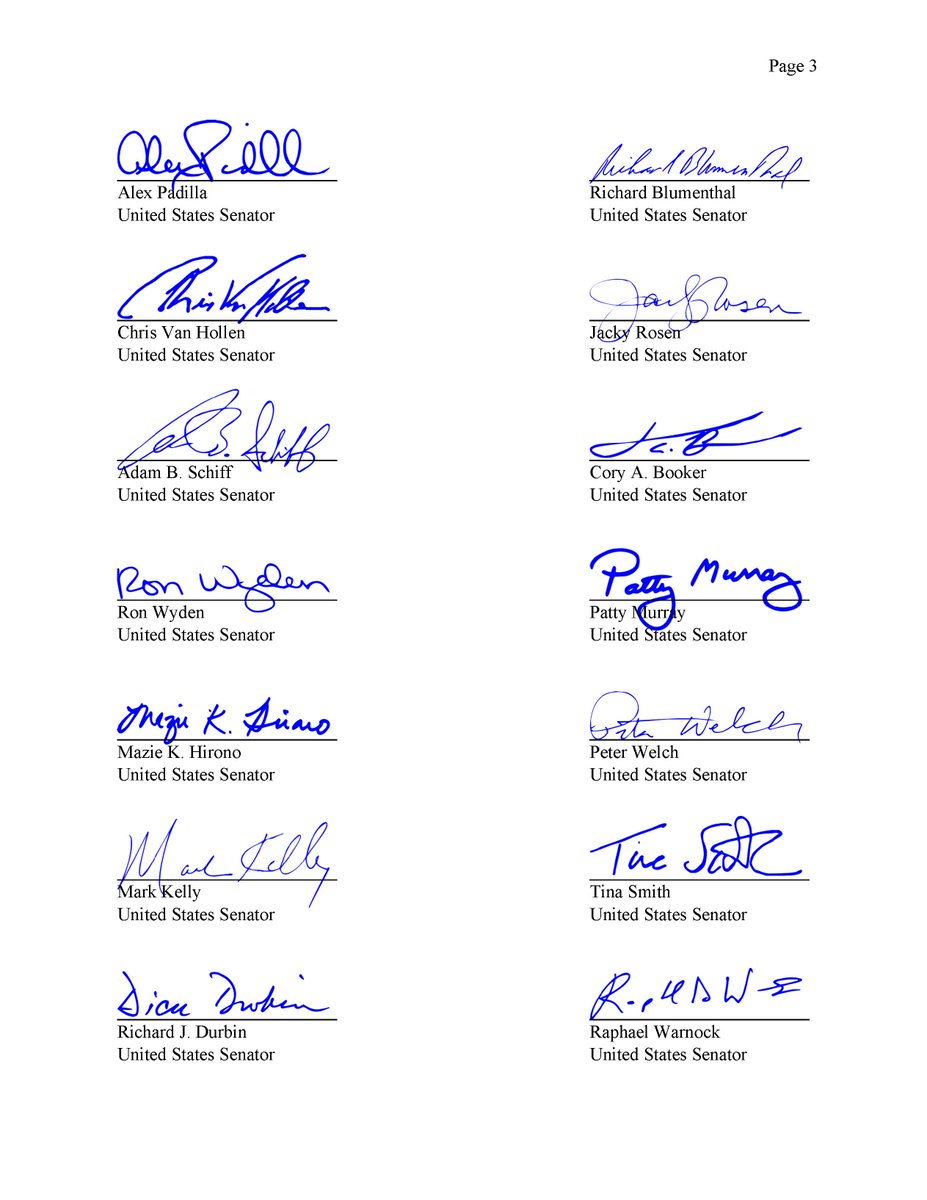 Page 3
Alex Padilla
Alex Padilla
United States Senator
Richard Blumenthal
Richard Blumenthal
United States Senator
Chris Van Hollen
Chris Van Hollen
United States Senator
Jacky Rosen
Jacky Rosen
United States Senator
Adam B. Schiff
United States Senator
Cory A. Booker
United States Senator
Ron Wyden
Ron Wyden
United States Senator
Patty Murray
Patty Murray
United States Senator
Mazie K. Hirono
Mazie K. Hirono
United States Senator
Peter Welch
Peter Welch
United States Senator
Mark Kelly
Mark Kelly
United States Senator
Tina Smith
Tina Smith
United States Senator
Dick Durbin
Richard J. Durbin
United States Senator
Raphael Warnock
United States Senator